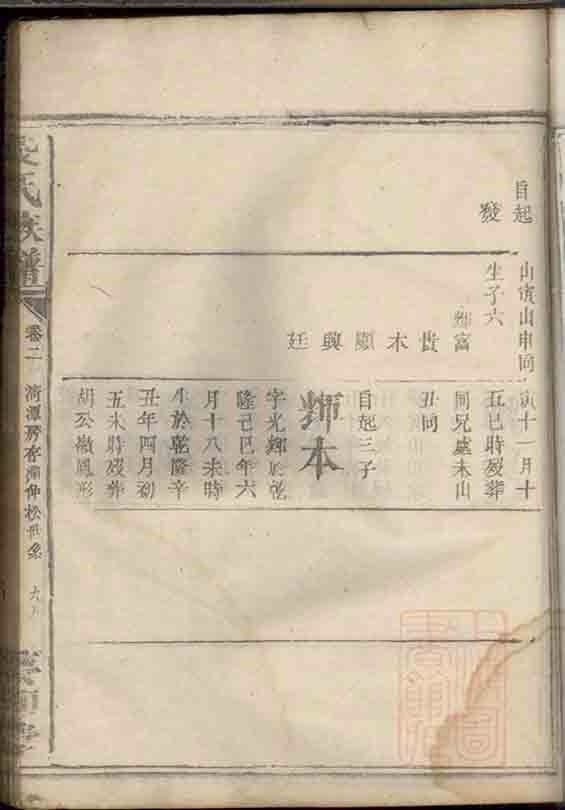 自起
發
山寅山申同
生子六
輝富
貴木顯興廷
寅十一月十
五巳時歿葬
同兄處未山
丑同
自起三子
輝本
字光輝於乾
隆己巳年六
月十八未時
於乾隆辛
丑年四月初
五未時歿葬
胡公嶶鳳形
氏族譜
卷二
房存淵仲松世系